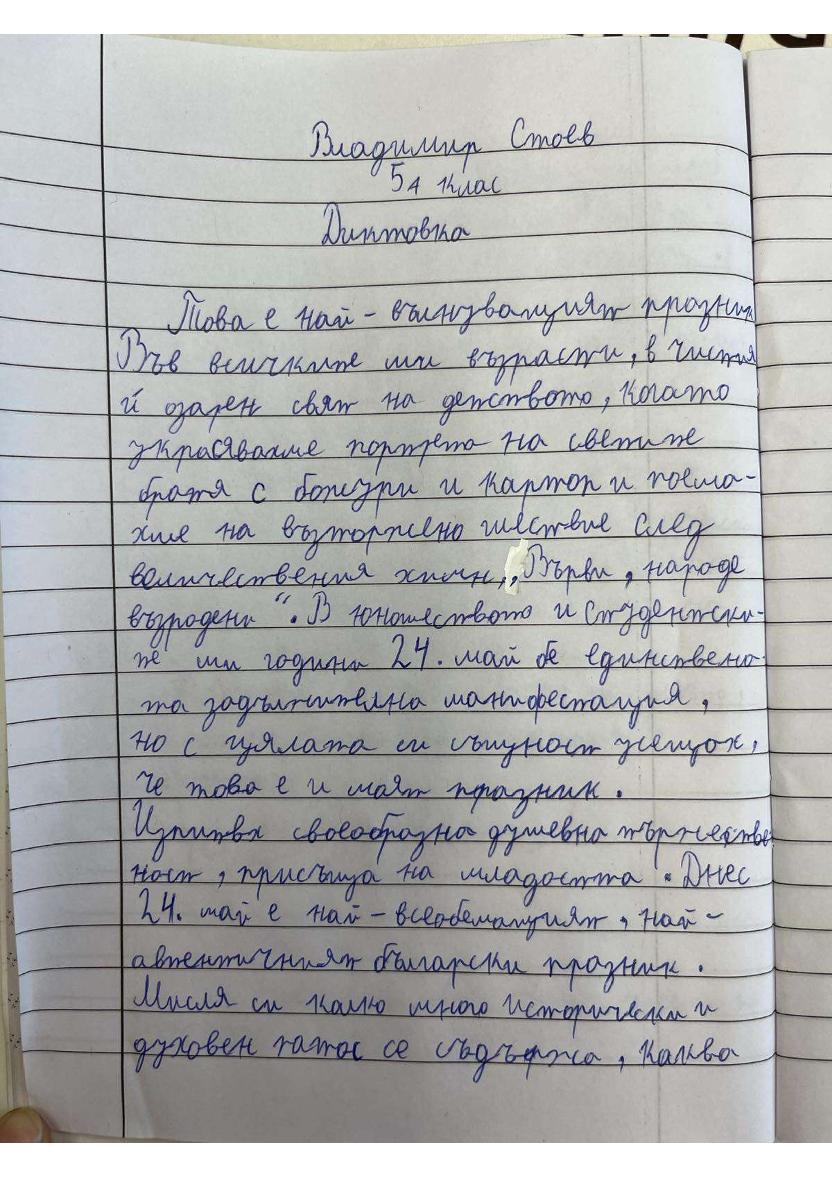 Владимир Стоев
5А клас
Диктовка
Това е най-вълнуващият празник
Във всичките ми възрасти, в чистия
й озарен свят на детството, когато
украсявахме портрета на светите
братя с божури и картон и поема-
хме на възторжено шествие след
величествения химн, „Върви, народе
възродени“. В юношеството и студентски-
те ми години 24. май бе единствена-
та задължителна манифестация,
но с цялата си същност усещах,
че това е и маят празник.
Изпитвх своеобразна душевна тържестве
ност, присъща на младостта. Днес
24. май е най-всеобемащият, най-
автентичният български празник.
Мисля си колко много исторически и
духовен патос се съдържа, каква